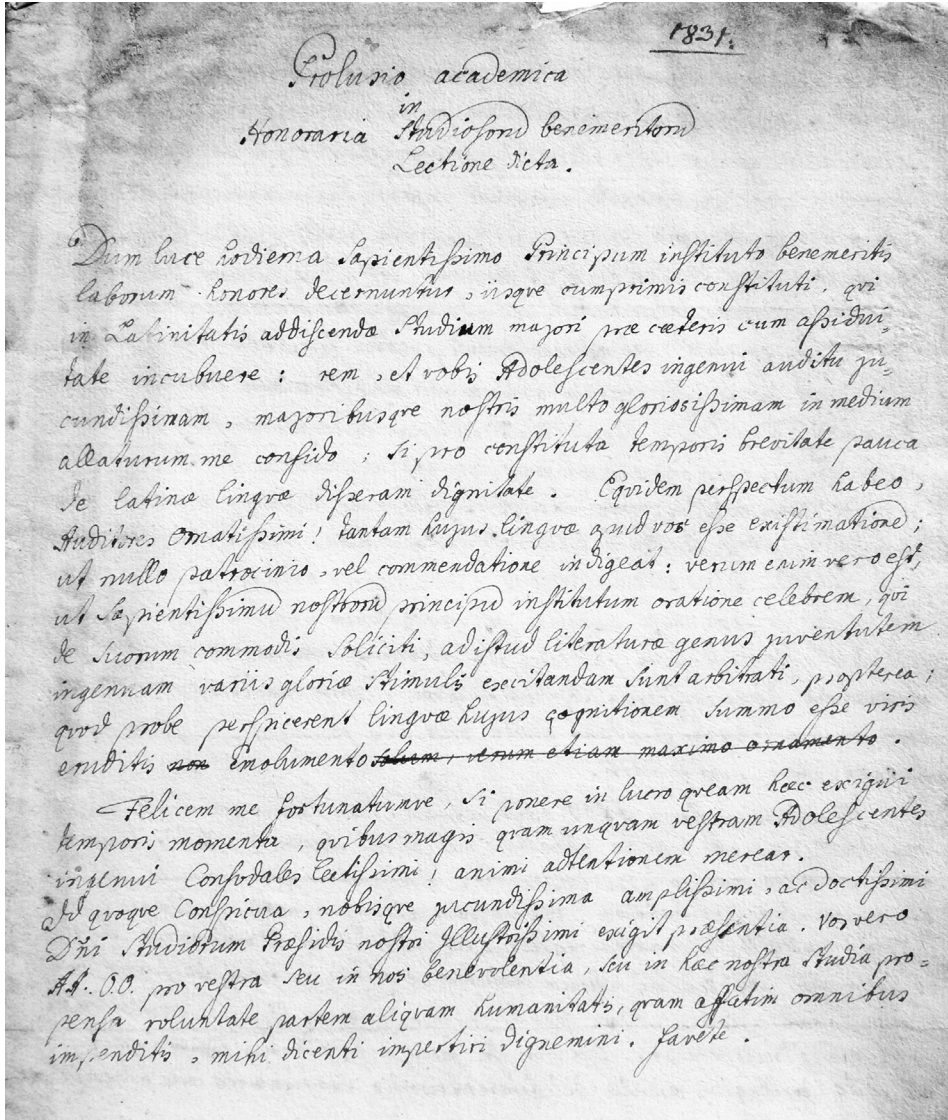 1831.
Prolusio academica
in
Honoraria Studiosorū benemeritorū
Lectione dicta.
Dum luce hodierna sapientissimo Principum instituto benemeritis
laborum honores decernuntur, iisqve cumprimis constituti, qvi
in Latinitatis addiscendæ Studium majori præ cæteris cum assidui=
tate incubuere: rem, et vobis Adolescentes ingenui auditu ju=
cundissimam, majoribusqve nostris multo gloriosissimam in medium
allaturum me confido; si pro constituta temporis brevitate pauca
de latinæ lingvæ disseram dignitate. Eqvidem perspectum habeo,
Auditores Ornatissimi! tantam hujus lingvæ apud vos esse existimationē;
ut nullo patrocinio, vel commendatione indigeat: verum enim vero est,
ut sapientissimū nostrorū principū institutum oratione celebrem, qvi
de suorum commodis soliciti, ad istud literaturæ genus juventutem
ingenuam variis gloriæ stimulis excitandam sunt arbitrati, propterea;
qvod probe perspicerent lingvæ hujus cognitionem summo esse viris
eruditis non emolumento solum, verum etiam maximo ornamento.
Felicem me fortunatumve, si ponere in lucro qveam hæc exigui
temporis momenta, qvibus magis qvam unqvam vestram Adolescentes
ingenui Consodales Lectissimi! animi adtentionem merear.
Id qvoqve Conspicua, nobisqve jucundissima amplissimi, ac doctissimi
Dn̄i Studiorum Præsidis nostri Illustrissimi exigit præsentia. Vos vero
AA. OO. pro vestra seu in nos benevolentia, seu in hæc nostra Studia pro=
pensa voluntate partem aliqvam humanitatis, qvam affatim omnibus
impenditis, mihi dicenti impertiri dignemini. Favete.